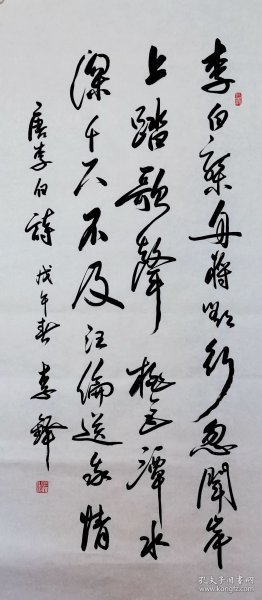 李白乘舟將欲行忽聞岸
上踏歌聲桃花潭水
深千尺不及汪倫送我情
唐李白詩 戊午春 李鐸
孔夫子旧书网
www.kongfz.com